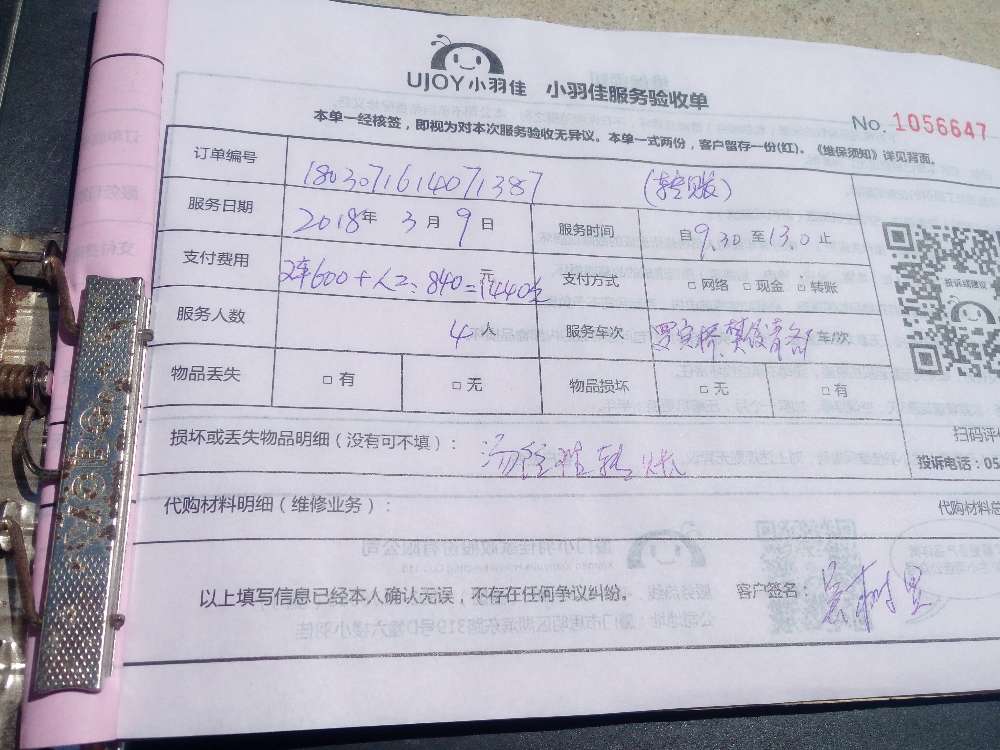 UJOY小羽佳 小羽佳服务验收单
No. 1056647
本单一经核签，即视为对本次服务验收无异议。本单一式两份，客户留存一份(红)。《维保须知》详见背面。
订单编号 1803071614071387 (转账)
服务日期 2018年3月9日 服务时间 自9.30至13.0止
支付费用 2车600+人工:840=1440元 元 支付方式 □网络 □现金 □转账
投诉或建议
服务人数 4人 服务车次 车/次
物品丢失 □有 □无 物品损坏 □无 □有
扫码评
损坏或丢失物品明细（没有可不填）： 转账
投诉电话：05
代购材料明细（维修业务）： 代购材料总
以上填写信息已经本人确认无误，不存在任何争议纠纷。 客户签名：